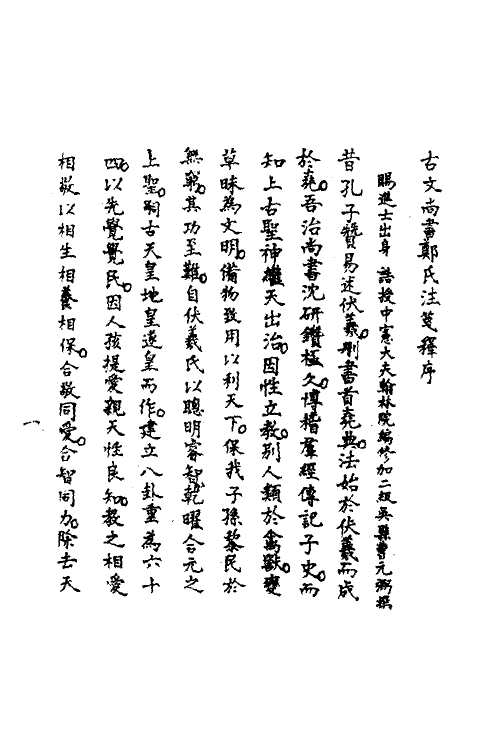 古文尚書鄭氏注箋釋序
賜進士出身誥授中憲大夫翰林院編修加二級吳縣曹元弼撰
昔孔子贊易述伏羲。刪書首堯典。法始於伏羲而成
於堯。吾治尚書沈研鑽極久。博稽羣經傳記子史。而
知上古聖神繼天出治。因性立教。別人類於禽獸。變
草昧為文明。備物致用以利天下。保我子孫黎民於
無窮。其功至難。自伏羲氏以聰明睿智。乾曜合元之
上聖。嗣古天皇地皇遂皇而作。建立八卦重為六十
四。以先覺覺民。因人孩提愛親天性良知。教之相愛
相敬以相生相養相保。合敬同愛。合智同力。除去天
一